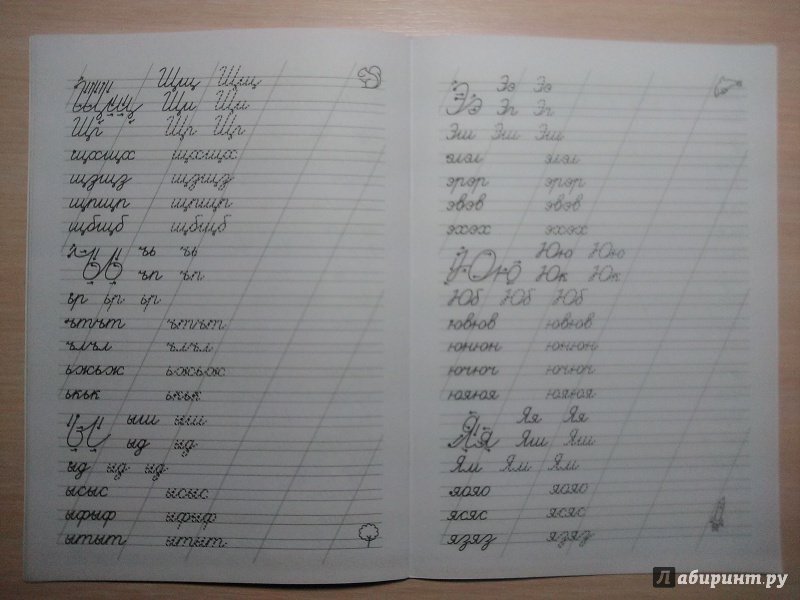 Щщ Щщ Щщ
Щи Щи
Щг Щг Щг
щхщх щхщх
щзщз щзщз
щпщп щпщп
щбщб щбщб
ъь ъь ъь
ъп ъп
ьр ьр ьр
ътът ътът
ълъл ълъл
ьжьж ьжьж
ькьк ькьк
ы ыш ыш
ыд ыд
ыд ыд ыд
ысыс ысыс
ыфыф ыфыф
ытыт ытыт
Ээ Ээ Ээ
Эп Эп
Эш Эш Эш
элэл элэл
эрэр эрэр
эвэв эвэв
эхэх эхэх
Юю Юю Юю
Юк Юк
Юб Юб Юб
ювюв ювюв
юнюн юнюн
ючюч ючюч
юяюя юяюя
Яя Яя Яя
Яш Яш
Ям Ям Ям
яояо яояо
ясяс ясяс
язяз язяз
Лабиринт.ру